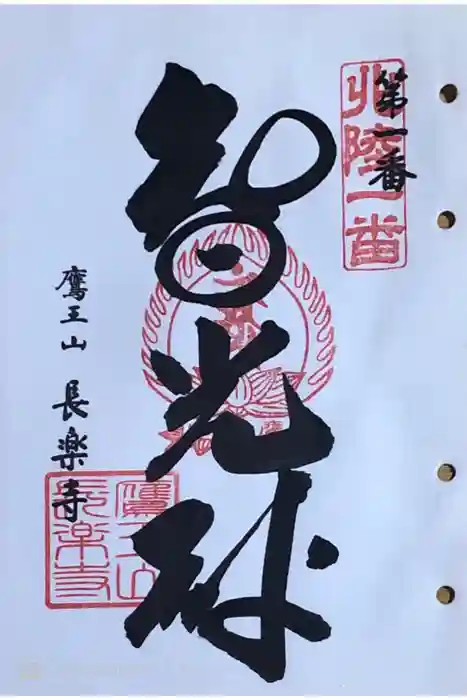 第一番
北陸一番
智光
鷹王山 長楽寺
鷹王山
長楽寺